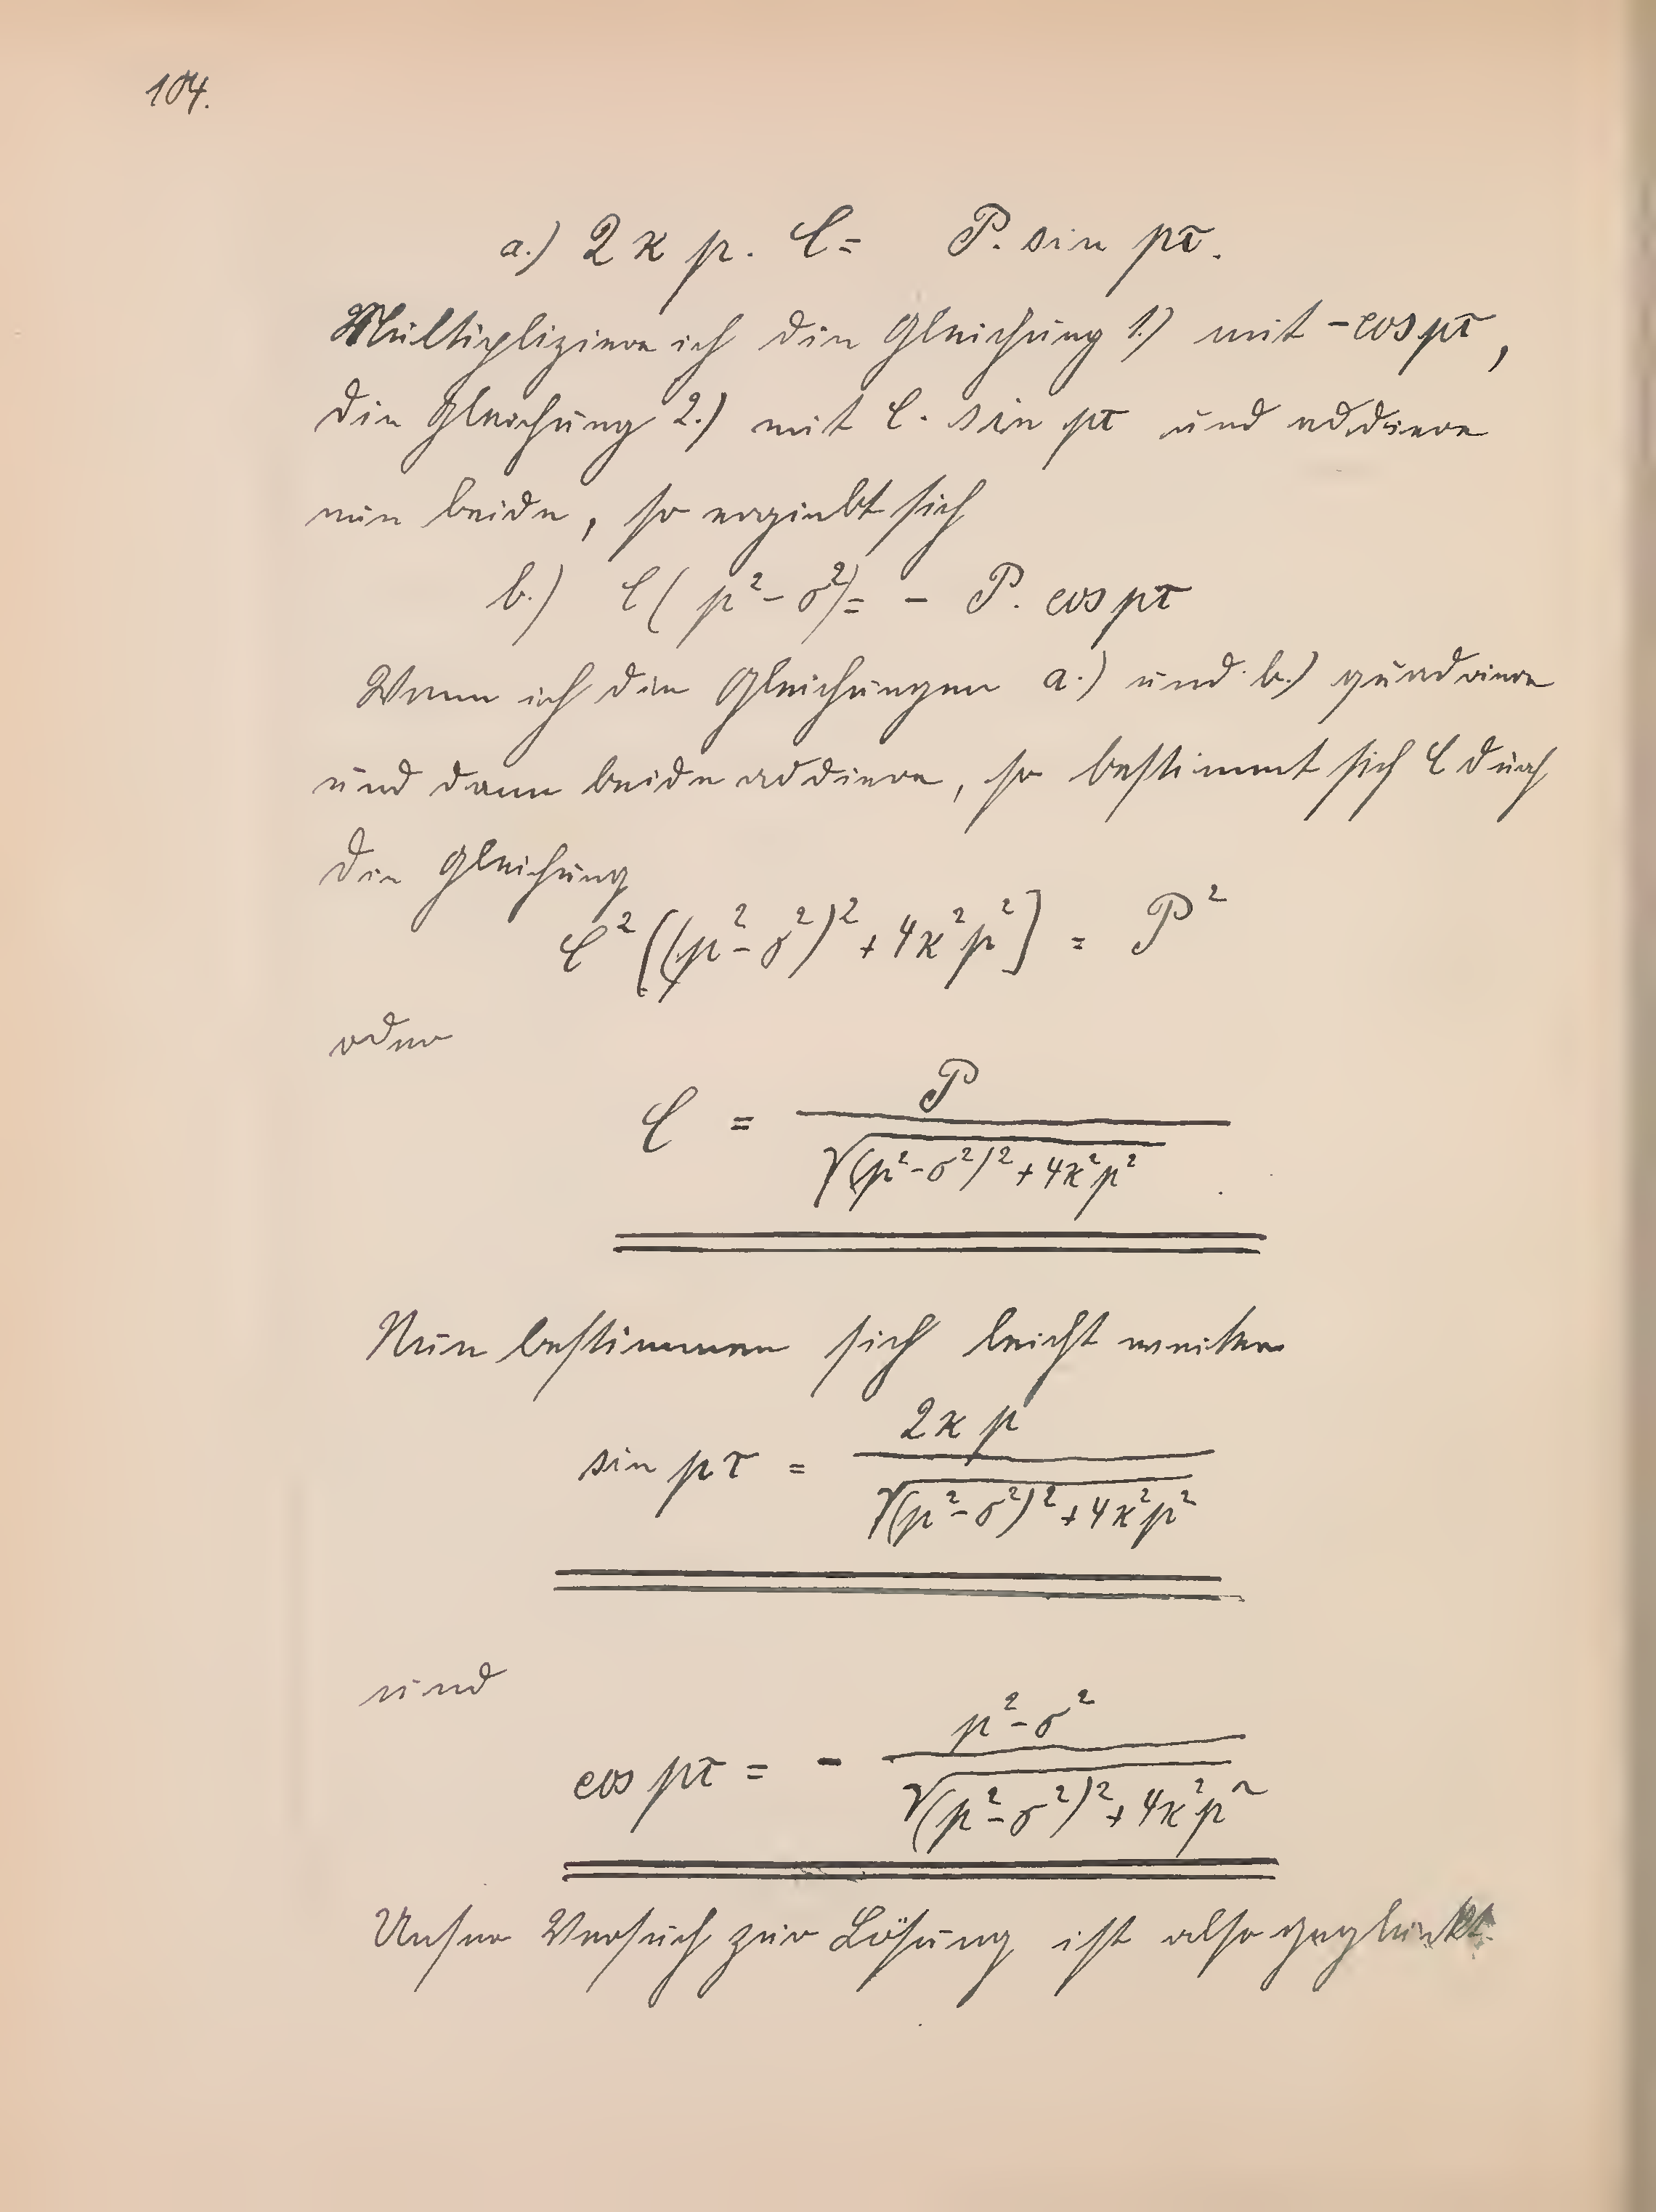 104.
a.) 2 ϰ p. C = P. sin pτ.
Multipliziere ich die Gleichung 1.) mit - cos pτ,
die Gleichung 2.) mit C. sin pτ und addiere
nun beide, so ergiebt sich
b.) C ( p² - σ² ) = - P. cos pτ
Wenn ich die Gleichungen a.) und b.) quadriere
und dann beide addiere, so bestimmt sich C durch
die Gleichung
C² [(p² - σ²)² + 4ϰ²p²] = P²
oder
C = P / √(p² - σ²)² + 4ϰ²p² .
Nun bestimmen sich leicht weiter
sin pτ = 2ϰ p / √(p² - σ²)² + 4ϰ²p²
und
cos pτ = - p² - σ² / √(p² - σ²)² + 4ϰ²p²
Unser Versuch zur Lösung ist also geglückt.